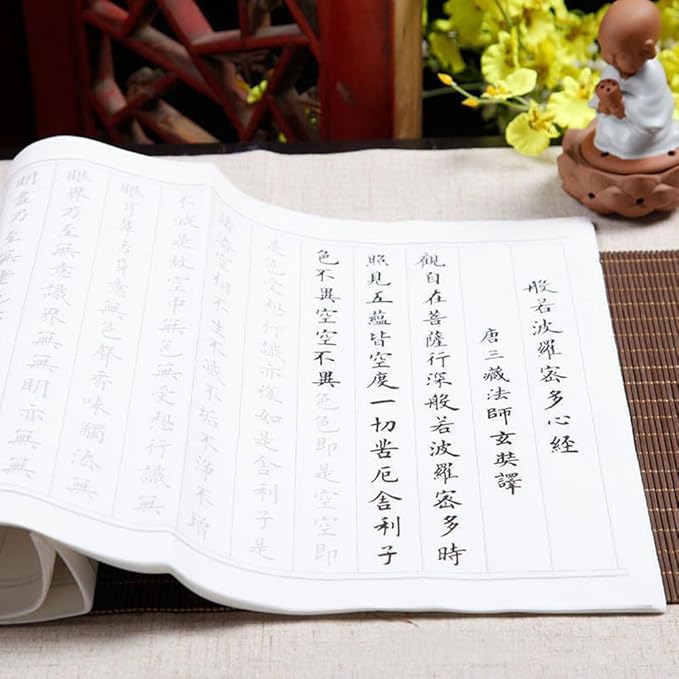 般若波羅密多心經
唐三藏法師玄奘譯
觀自在菩薩行深般若波羅密多時
照見五蘊皆空度一切苦厄舍利子
色不異空空不異色色即是空空即
是色受想行識亦復如是舍利子是
諸法空相不生不滅不垢不淨不增
不減是故空中無色無受想行識無
眼耳鼻舌身意無色聲香味觸法無
眼界乃至無意識界無無明亦無無
明盡乃至無老